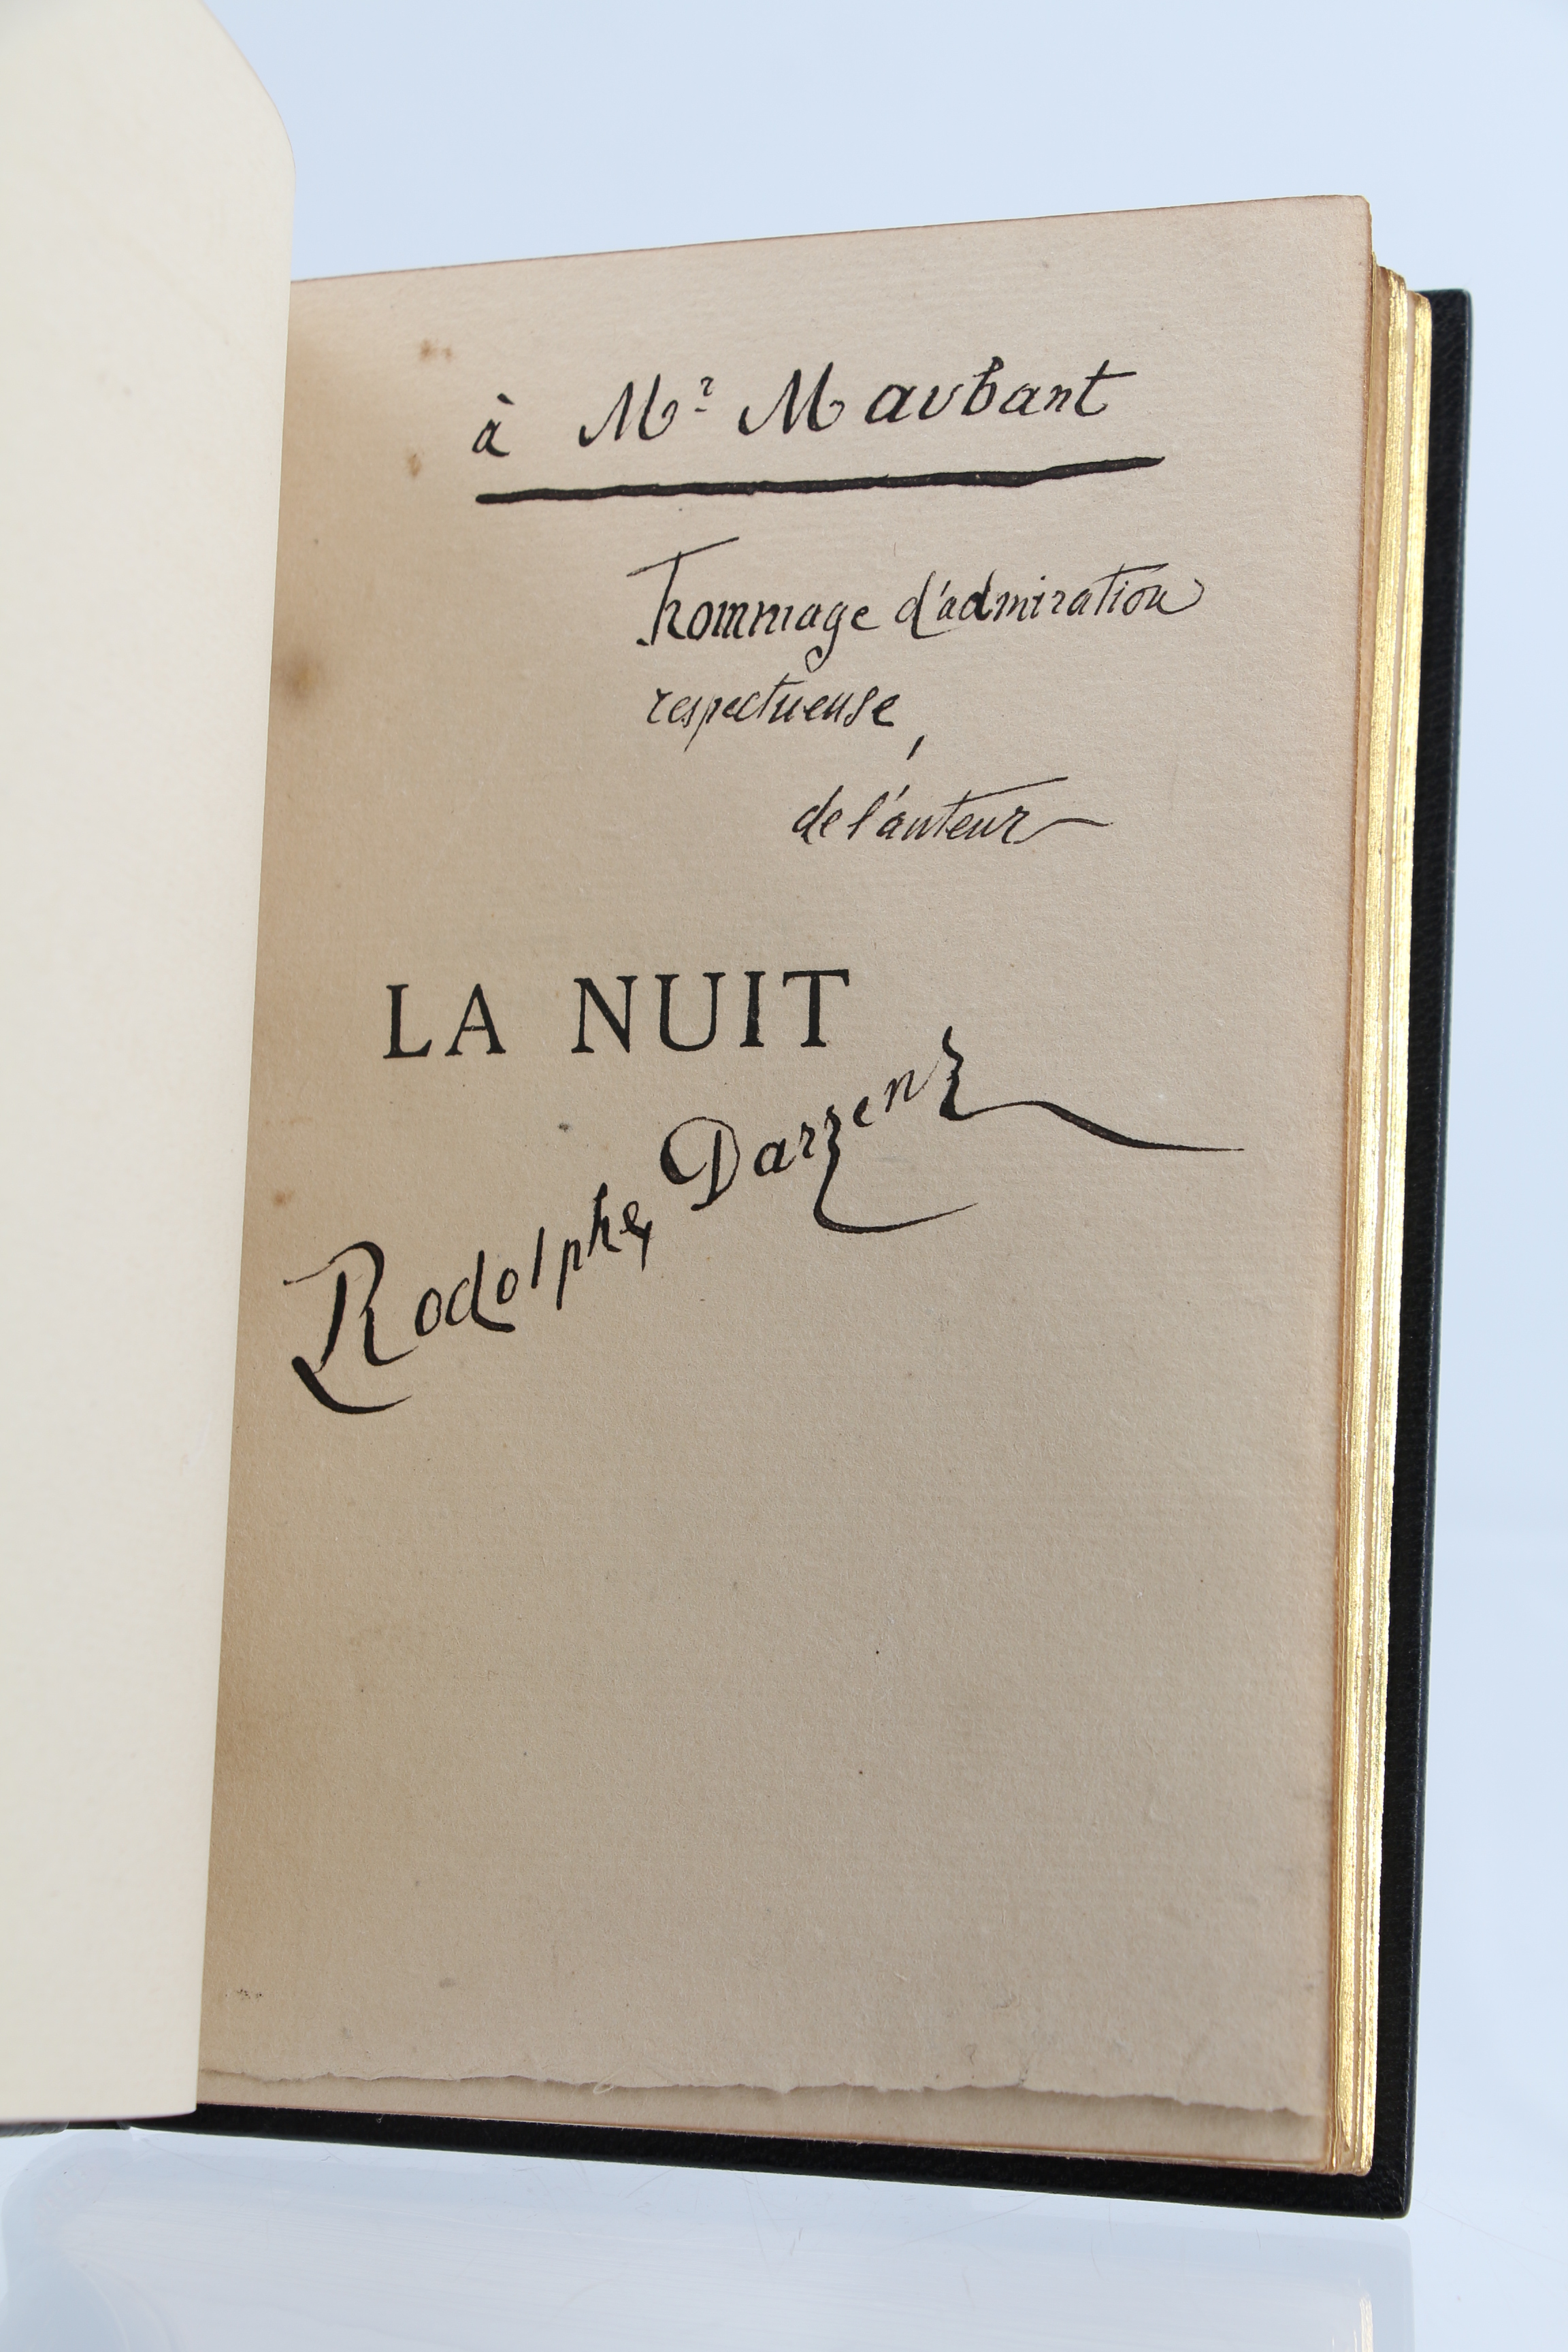 à Mr Maubant
hommage d'admiration
respectueuse,
de l'auteur
LA NUIT
Rodolphe Darzens